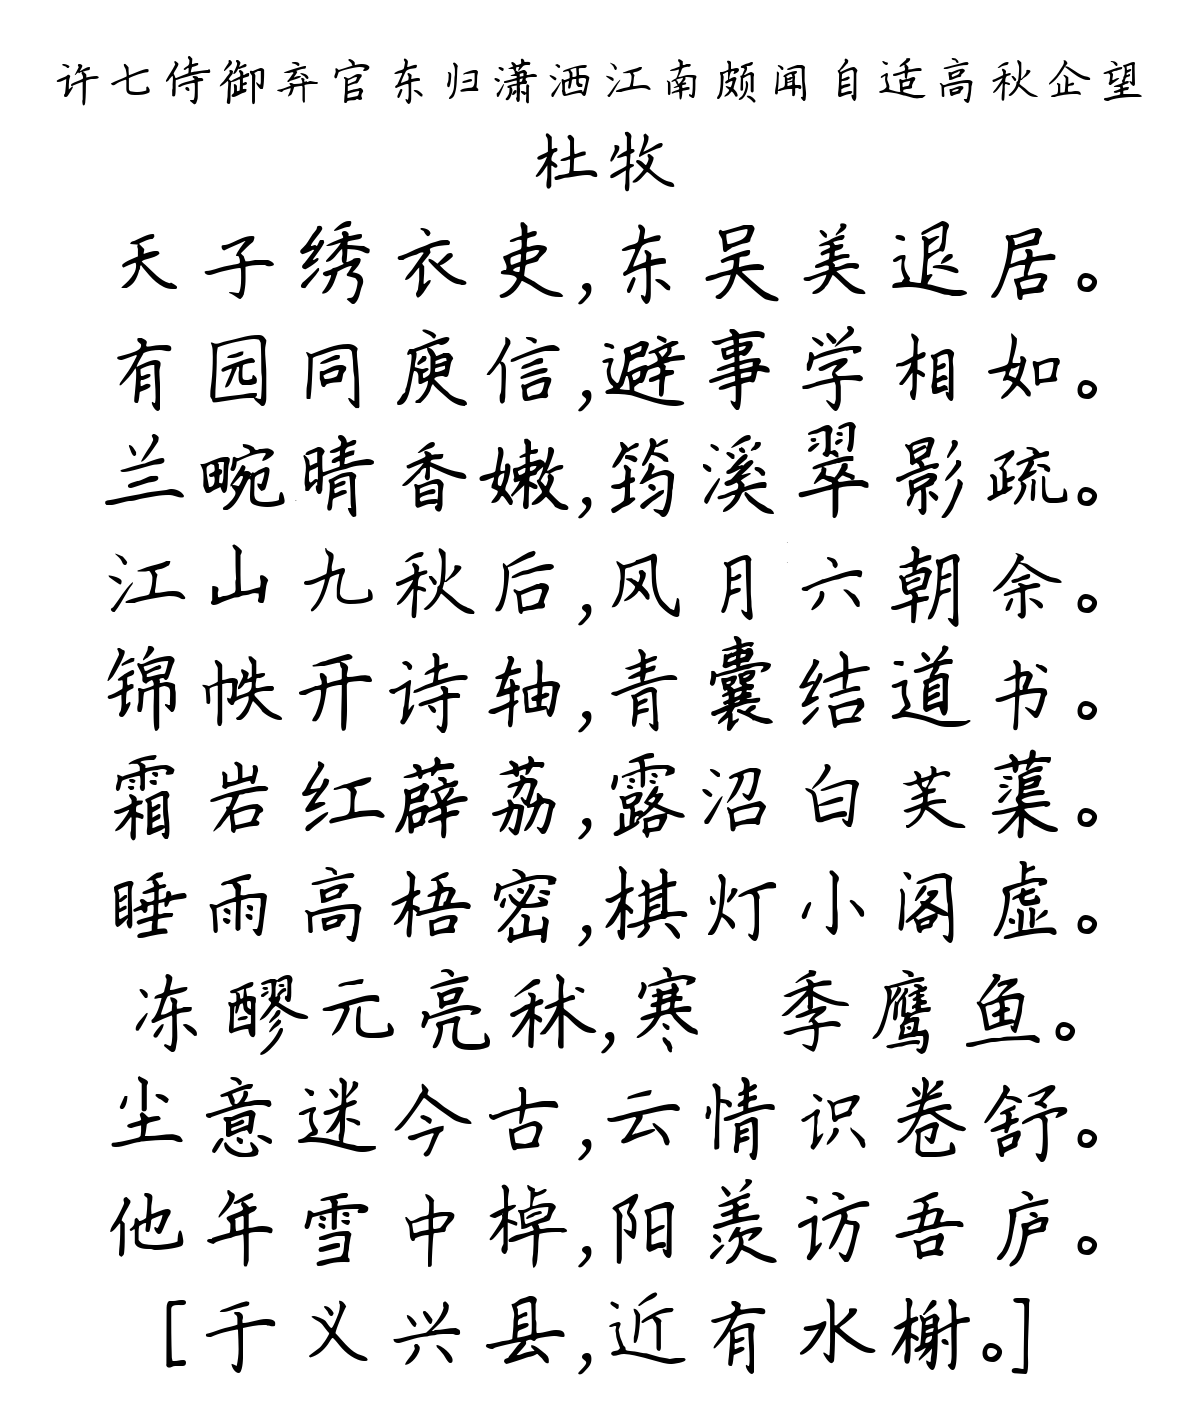 许七侍御弃官东归潇洒江南颇闻自适高秋企望
杜牧
天子绣衣吏,东吴美退居。
有园同庾信,避事学相如。
兰畹晴香嫩,筠溪翠影疏。
江山九秋后,风月六朝余。
锦帙开诗轴,青囊结道书。
霜岩红薜荔,露沼白芙蕖。
睡雨高梧密,棋灯小阁虚。
冻醪元亮秫,寒 季鹰鱼。
尘意迷今古,云情识卷舒。
他年雪中棹,阳羡访吾庐。
[于义兴县,近有水榭。]